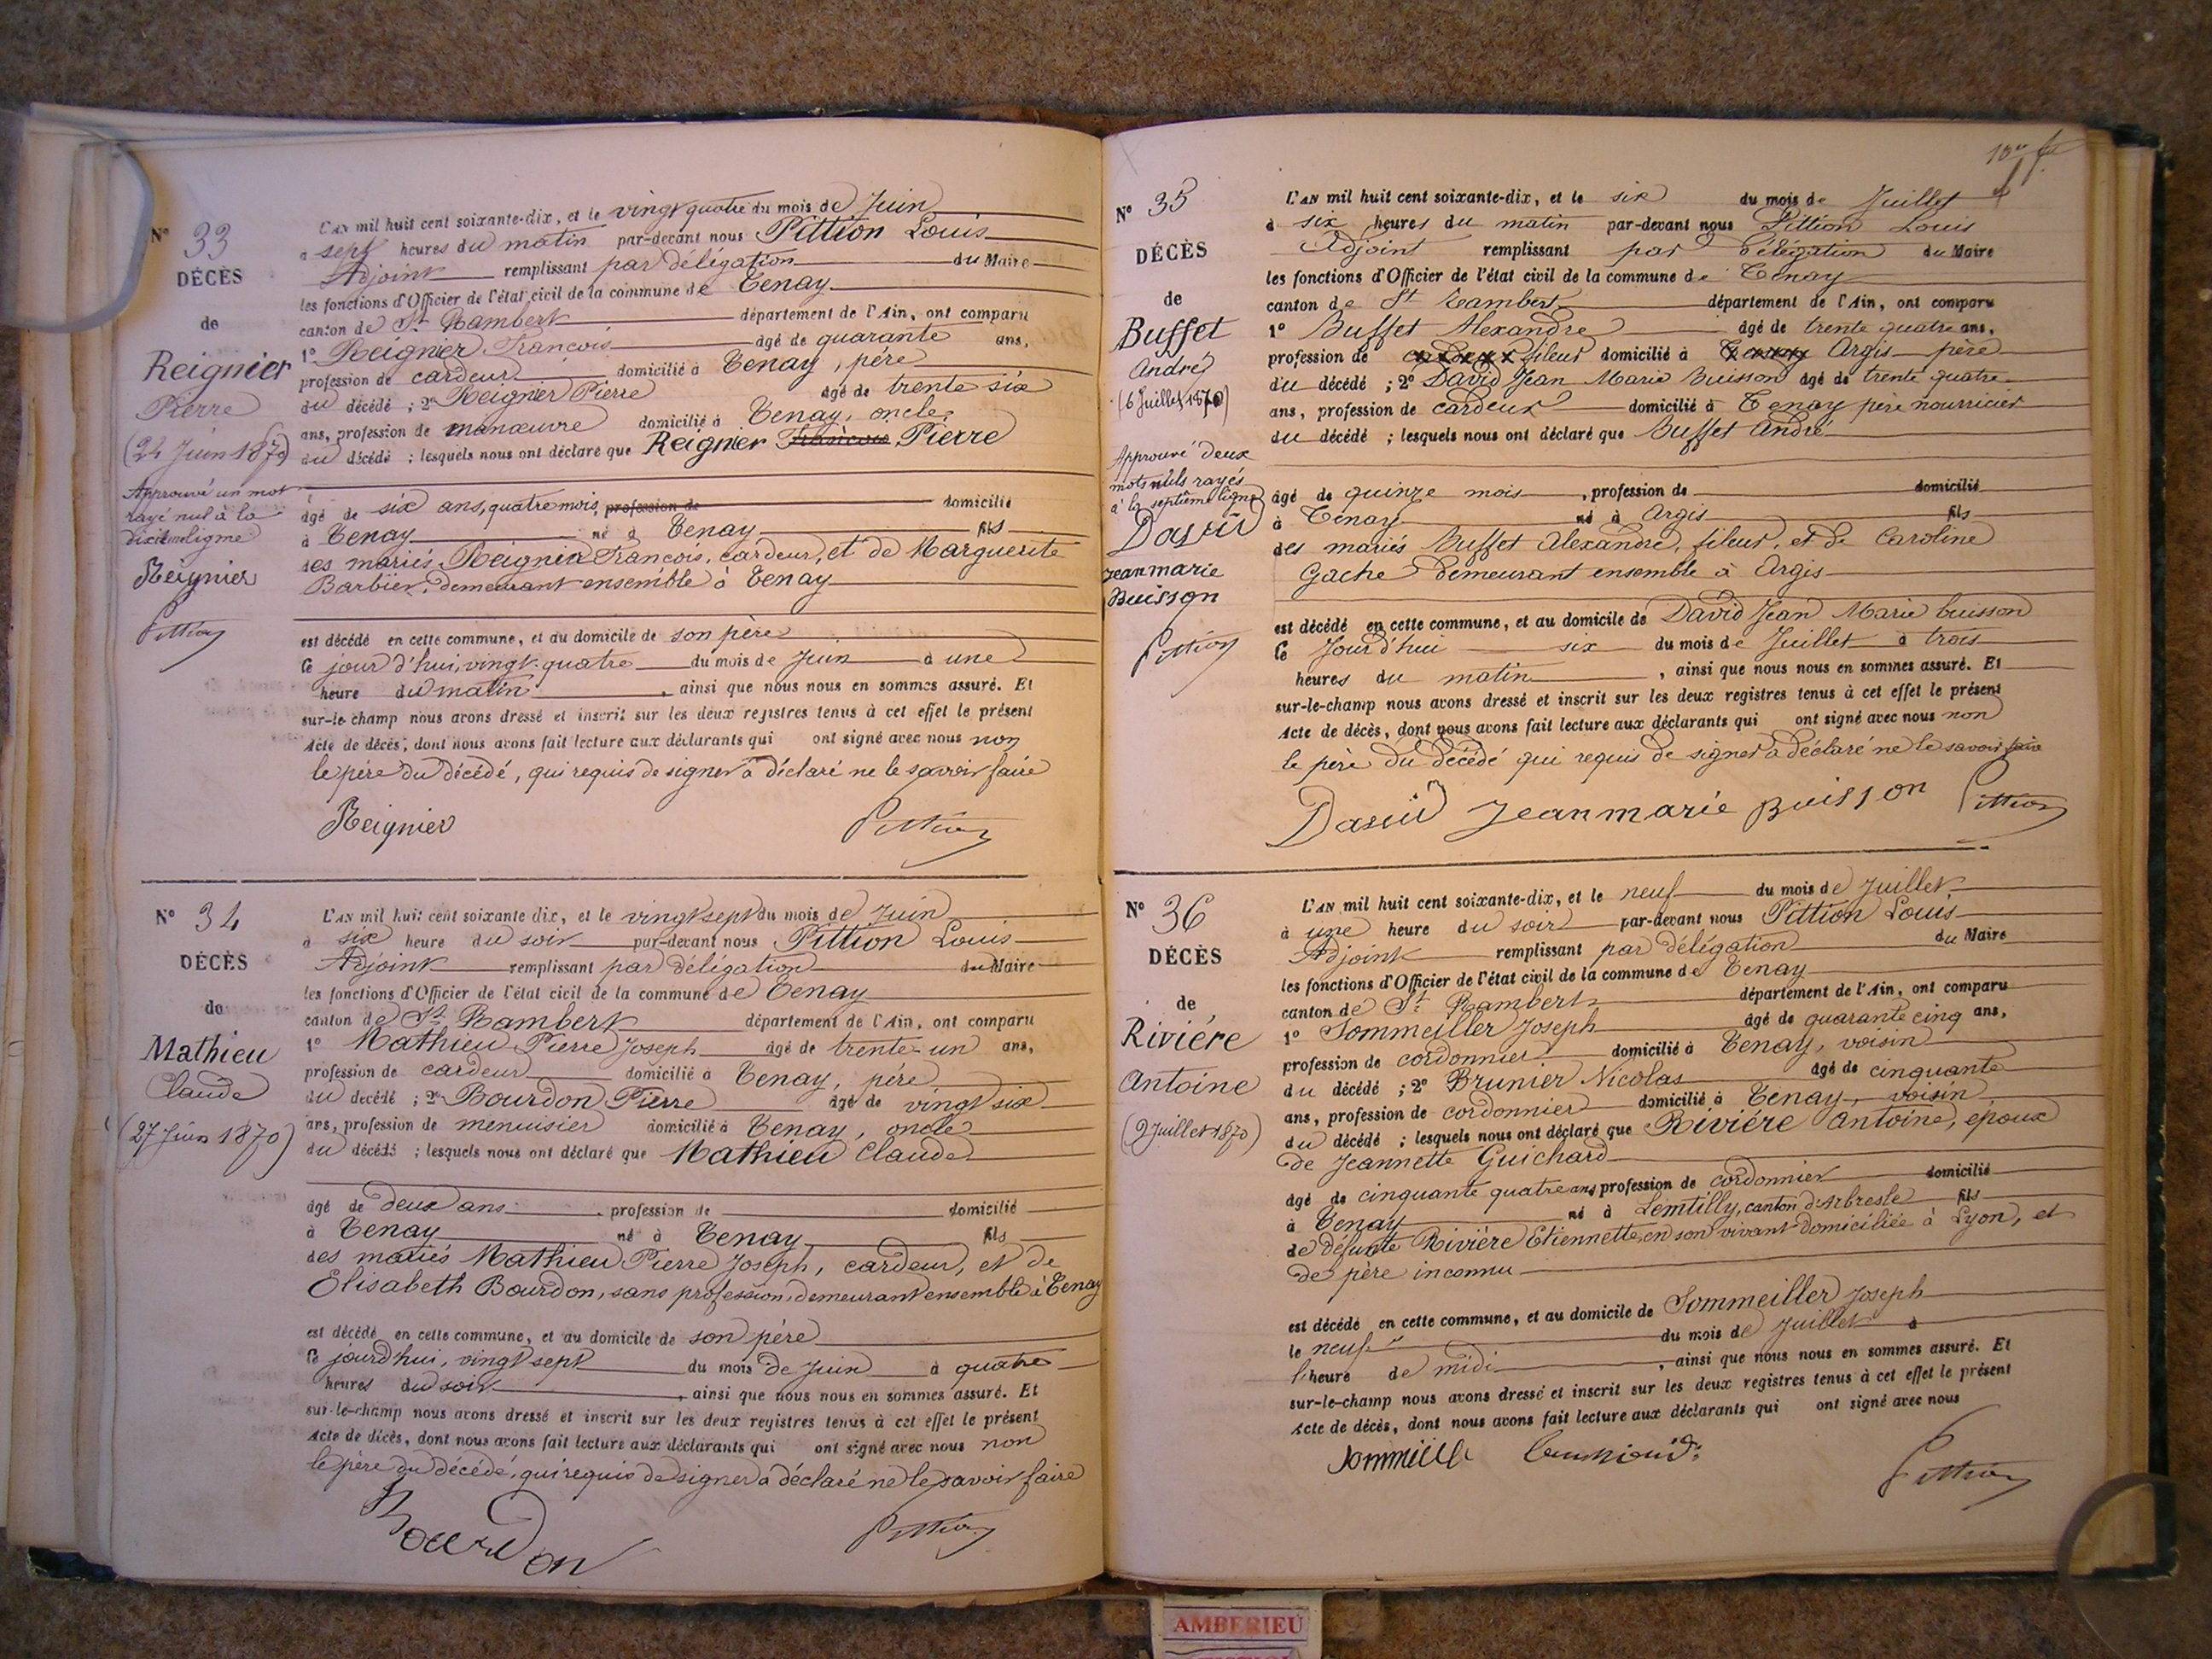 N° 33
DÉCÈS
de
Reignier
Pierre
(24 Juin 1870)
Approuvé un mot
rayé nul à la
dixième ligne
Reignier
Pittion
L'AN mil huit cent soixante-dix, et le vingt quatre du mois de Juin
a sept heures du matin par-devant nous Pittion Louis
Adjoint remplissant par délégation du Maire
les fonctions d'Officier de l'état civil de la commune de Tenay
canton de St Rambert département de l'Ain, ont comparu
1° Reignier François âgé de quarante ans,
profession de cardeur domicilié à Tenay, père
du décédé ; 2° Reignier Pierre âgé de trente six
ans, profession de manœuvre domicilié à Tenay, oncle
du décédé ; lesquels nous ont déclaré que Reignier François Pierre
âgé de six ans, quatre mois, profession de domicilié
à Tenay né à Tenay fils
des mariés Reignier François, cardeur, et de Marguerite
Barbier, demeurant ensemble à Tenay
est décédé en cette commune, et au domicile de son père
le jour d'hui, vingt-quatre du mois de Juin à une
heure du matin, ainsi que nous nous en sommes assuré. Et
sur-le-champ nous avons dressé et inscrit sur les deux registres tenus à cet effet le présent
Acte de décès, dont nous avons fait lecture aux déclarants qui ont signé avec nous non
le père du décédé, qui requis de signer a déclaré ne le savoir faire
Reignier Pittion
N° 34
DÉCÈS
de
Mathieu
Claude
(27 Juin 1870)
L'AN mil huit cent soixante dix, et le vingt sept du mois de Juin
à six heure du soir par-devant nous Pittion Louis
Adjoint remplissant par délégation du Maire
les fonctions d'Officier de l'état civil de la commune de Tenay
canton de St Rambert département de l'Ain, ont comparu
1° Mathieu Pierre Joseph âgé de trente-un ans,
profession de cardeur domicilié à Tenay, père
du décédé ; 2° Bourdon Pierre âgé de vingt six
ans, profession de menuisier domicilié à Tenay, oncle
du décédé ; lesquels nous ont déclaré que Mathieu Claude
âgé de deux ans profession de domicilié
à Tenay né à Tenay fils
des mariés Mathieu Pierre Joseph, cardeur, et de
Elisabeth Bourdon, sans profession, demeurant ensemble à Tenay
est décédé en cette commune, et au domicile de son père
le jourd'hui, vingt sept du mois de Juin à quatre
heures du soir, ainsi que nous nous en sommes assuré. Et
sur-le-champ nous avons dressé et inscrit sur les deux registres tenus à cet effet le présent
Acte de décès, dont nous avons fait lecture aux déclarants qui ont signé avec nous non
le père du décédé, qui requis de signer a déclaré ne le savoir faire
Bourdon Pittion
N° 35
DÉCÈS
de
Buffet
André
(6 Juillet 1870)
Approuvé deux
mots nuls rayés
à la septième ligne
David
Jean marie
Buisson
Pittion
L'AN mil huit cent soixante-dix, et le six du mois de Juillet
à six heures du matin par-devant nous Pittion Louis
Adjoint remplissant par délégation du Maire
les fonctions d'Officier de l'état civil de la commune de Tenay
canton de St Rambert département de l'Ain, ont comparu
1° Buffet Alexandre âgé de trente quatre ans,
profession de cardeur fileur domicilié à Tenay Argis père
du décédé ; 2° David Jean Marie Buisson âgé de trente quatre
ans, profession de cardeur domicilié à Tenay père nourricier
du décédé ; lesquels nous ont déclaré que Buffet André
âgé de quinze mois, profession de domicilié
à Tenay né à Argis fils
des mariés Buffet Alexandre, fileur, et de Caroline
Gache demeurant ensemble à Argis
est décédé en cette commune, et au domicile de David Jean Marie buisson
le Jourd'hui six du mois de Juillet à trois
heures du matin, ainsi que nous nous en sommes assuré. Et
sur-le-champ nous avons dressé et inscrit sur les deux registres tenus à cet effet le présent
Acte de décès, dont nous avons fait lecture aux déclarants qui ont signé avec nous non
le père du décédé qui requis de signer a déclaré ne le savoir faire
David Jean marie Buisson Pittion
N° 36
DÉCÈS
de
Riviére
Antoine
(9 Juillet 1870)
L'AN mil huit cent soixante-dix, et le neuf du mois de Juillet
à une heure du soir par-devant nous Pittion Louis
Adjoint remplissant par délégation du Maire
les fonctions d'Officier de l'état civil de la commune de Tenay
canton de St Rambert département de l'Ain, ont comparu
1° Sommeiller Joseph âgé de quarante cinq ans,
profession de cordonnier domicilié à Tenay, voisin
du décédé ; 2° Brunier Nicolas âgé de cinquante
ans, profession de cordonnier domicilié à Tenay, voisin
du décédé ; lesquels nous ont déclaré que Riviére Antoine, époux
de Jeannette Guichard
âgé de cinquante quatre ans profession de cordonnier domicilié
à Tenay né à Lentilly, canton d'Arbresle fils
de défunte Rivière Etiennette, en son vivant domiciliée à Lyon, et
de père inconnu
est décédé en cette commune, et au domicile de Sommeiller Joseph
le neuf du mois de Juillet à
l'heure de midi, ainsi que nous nous en sommes assuré. Et
sur-le-champ nous avons dressé et inscrit sur les deux registres tenus à cet effet le présent
Acte de décès, dont nous avons fait lecture aux déclarants qui ont signé avec nous
Pittion
AMBERIEU